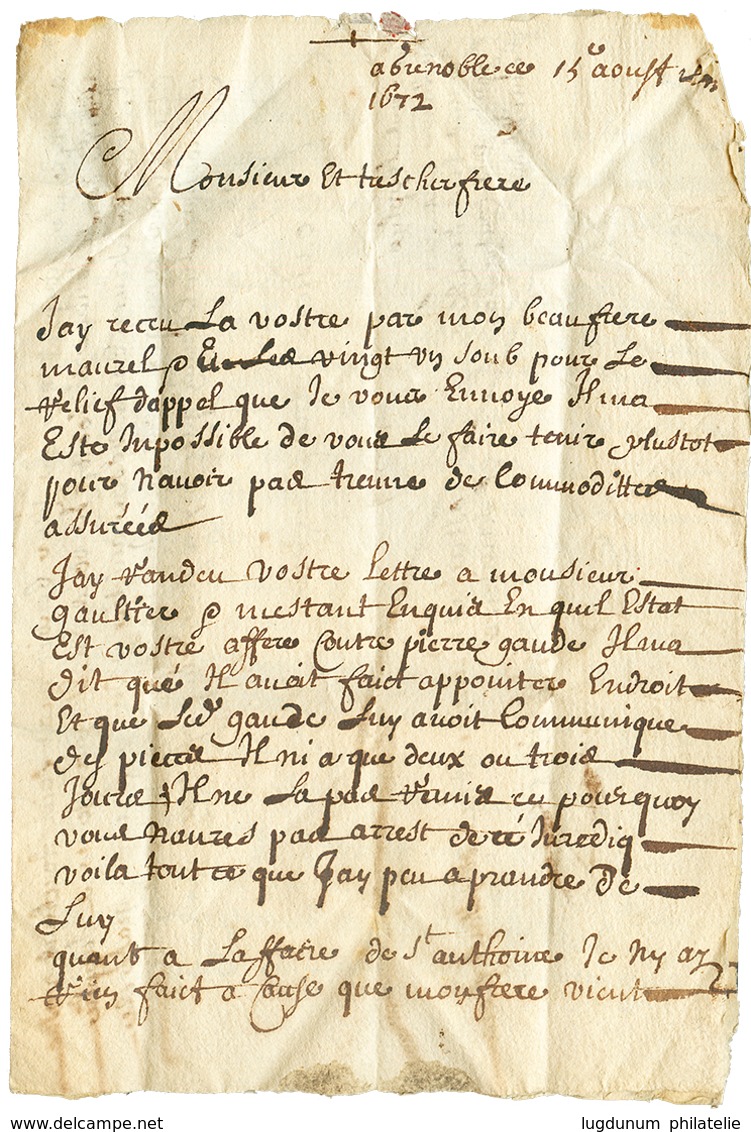 a Grenoble ce 15e aoust
1672
Monsieur Et tres cher frere
Jay receu La vostre par mon beaufrere
maurel & vingt un soub pour Le
Relief dappel que Je vous Envoye Il ma
Este Impossible de vous Le faire tenir plustot
pour navoir pas treuve de Commodittes
assurées
Jay randeu vostre lettre a monsieur
gaultier & mestant Enquis En quil Estat
Est vostre affere Contre pierre gaude Il ma
dit qué Il avoit faict appointer En droit
Et que Led. gaude Luy avoit Communique
des pieces Il ni a que deux ou trois
Jours Il ne La pas Remis ce pourquoy
vous naures pas arrest de
voila tout ce que Jay peu aprandre De
Luy
quant a Laffaire de St anthoine Je ny ay
Rien faict a Cause que mon frere vient
lugdunum philatelie